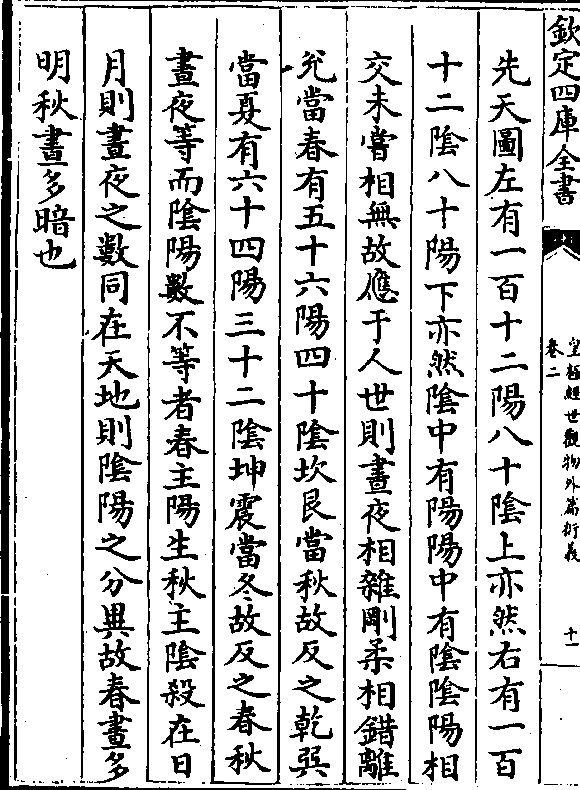 欽定四庫全書
皇極經世觀物外篇衍義
卷二
十一
先天圖左有一百十二陽八十陰上亦然右有一百
十二陰八十陽下亦然陰中有陽陽中有陰陰陽相
交未嘗相無故應于人世則晝夜相雜剛柔相錯離
兊當春有五十六陽四十陰坎艮當秋故反之乾巽
當夏有六十四陽三十二陰坤震當冬故反之春秋
晝夜等而陰陽數不等者春主陽生秋主陰殺在日
月則晝夜之數同在天地則陰陽之分異故春晝多
明秋晝多暗也